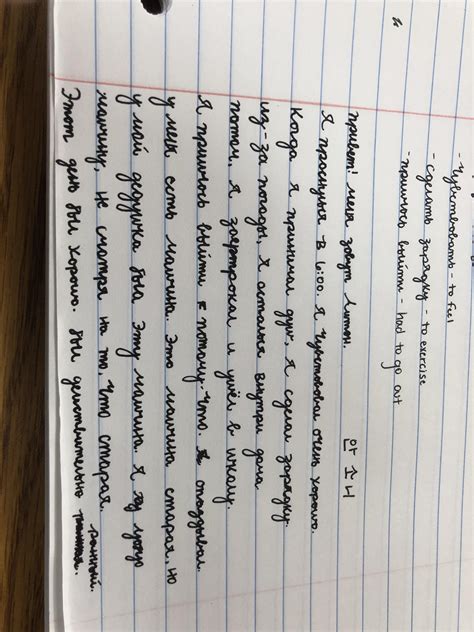 - Чувствовать - to feel
- сделать зарядку - to exercise
- пришлось выйти - had to go out
안소니
привет! меня зовут Антон.
Я проснулся в 6:00. Я чувствовал очень хорошо.
Когда я принимал душ, я сделал зарядку.
из-за погоды, я остался внутри дома
потом, я завтракал и ушёл в школу.
Я пришлось выйти потому-что. опаздывал.
у меня есть машина. Это машина старая, но
у мой дедушка была эту машина. Я люблю
машину, не смотря на то, что старая.
ранний.
Этот день был хорошо. был действительно